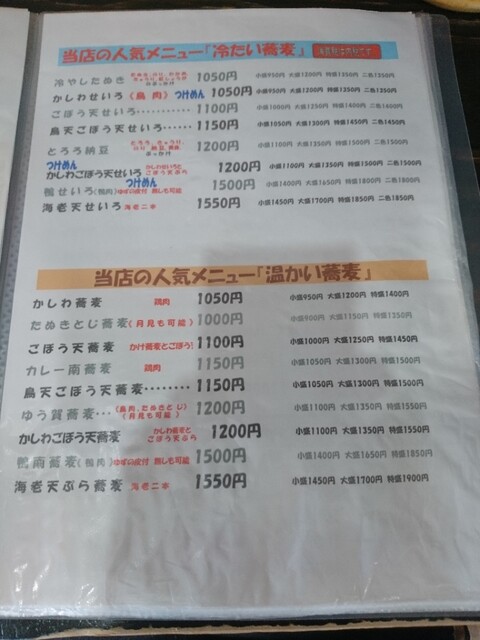 当店の人気メニュー「冷たい蕎麦」
冷やしたぬき 1050円 小盛950円 大盛1200円 特盛1350円 二色1350円
かしわせいろ(鳥肉) つけめん 1050円 小盛950円 大盛1200円 特盛1350円 二色1350円
ごぼう天せいろ 1100円 小盛1000円 大盛1250円 特盛1400円 二色1400円
鳥天ごぼう天せいろ 1150円 小盛1050円 大盛1300円 特盛1450円 二色1450円
とろろ納豆 1200円 小盛1100円 大盛1350円 特盛1500円 二色1500円
つけめん
かしわごぼう天せいろ かしわせいろと ごぼう天ぷら 1200円 小盛1100円 大盛1350円 特盛1500円 二色1500円
つけめん
鴨せいろ(鴨肉) ゆずの皮付 無しも可能 1500円 小盛1400円 大盛1650円 特盛1800円 二色1800円
海老天せいろ 海老二本 1550円 小盛1450円 大盛1700円 特盛1850円 二色1850円
当店の人気メニュー「温かい蕎麦」
かしわ蕎麦 鶏肉 1050円 小盛950円 大盛1200円 特盛1400円
たぬきとじ蕎麦(月見も可能) 1000円 小盛900円 大盛1150円 特盛1350円
ごぼう天蕎麦 かけ蕎麦とごぼう天 1100円 小盛1000円 大盛1250円 特盛1450円
カレー南蕎麦 鶏肉 1150円 小盛1050円 大盛1300円 特盛1500円
鳥天ごぼう天蕎麦 1150円 小盛1050円 大盛1300円 特盛1500円
ゆう質蕎麦 (鳥肉、たぬきとじ) (月見も可能) 1200円 小盛1100円 大盛1350円 特盛1550円
かしわごぼう天蕎麦 かしわ蕎麦と ごぼう天ぷら 1200円 小盛1100円 大盛1350円 特盛1550円
鴨南蕎麦(鴨肉) ゆずの皮付 無しも可能 1500円 小盛1400円 大盛1650円 特盛1850円
海老天ぷら蕎麦 海老二本 1550円 小盛1450円 大盛1700円 特盛1900円